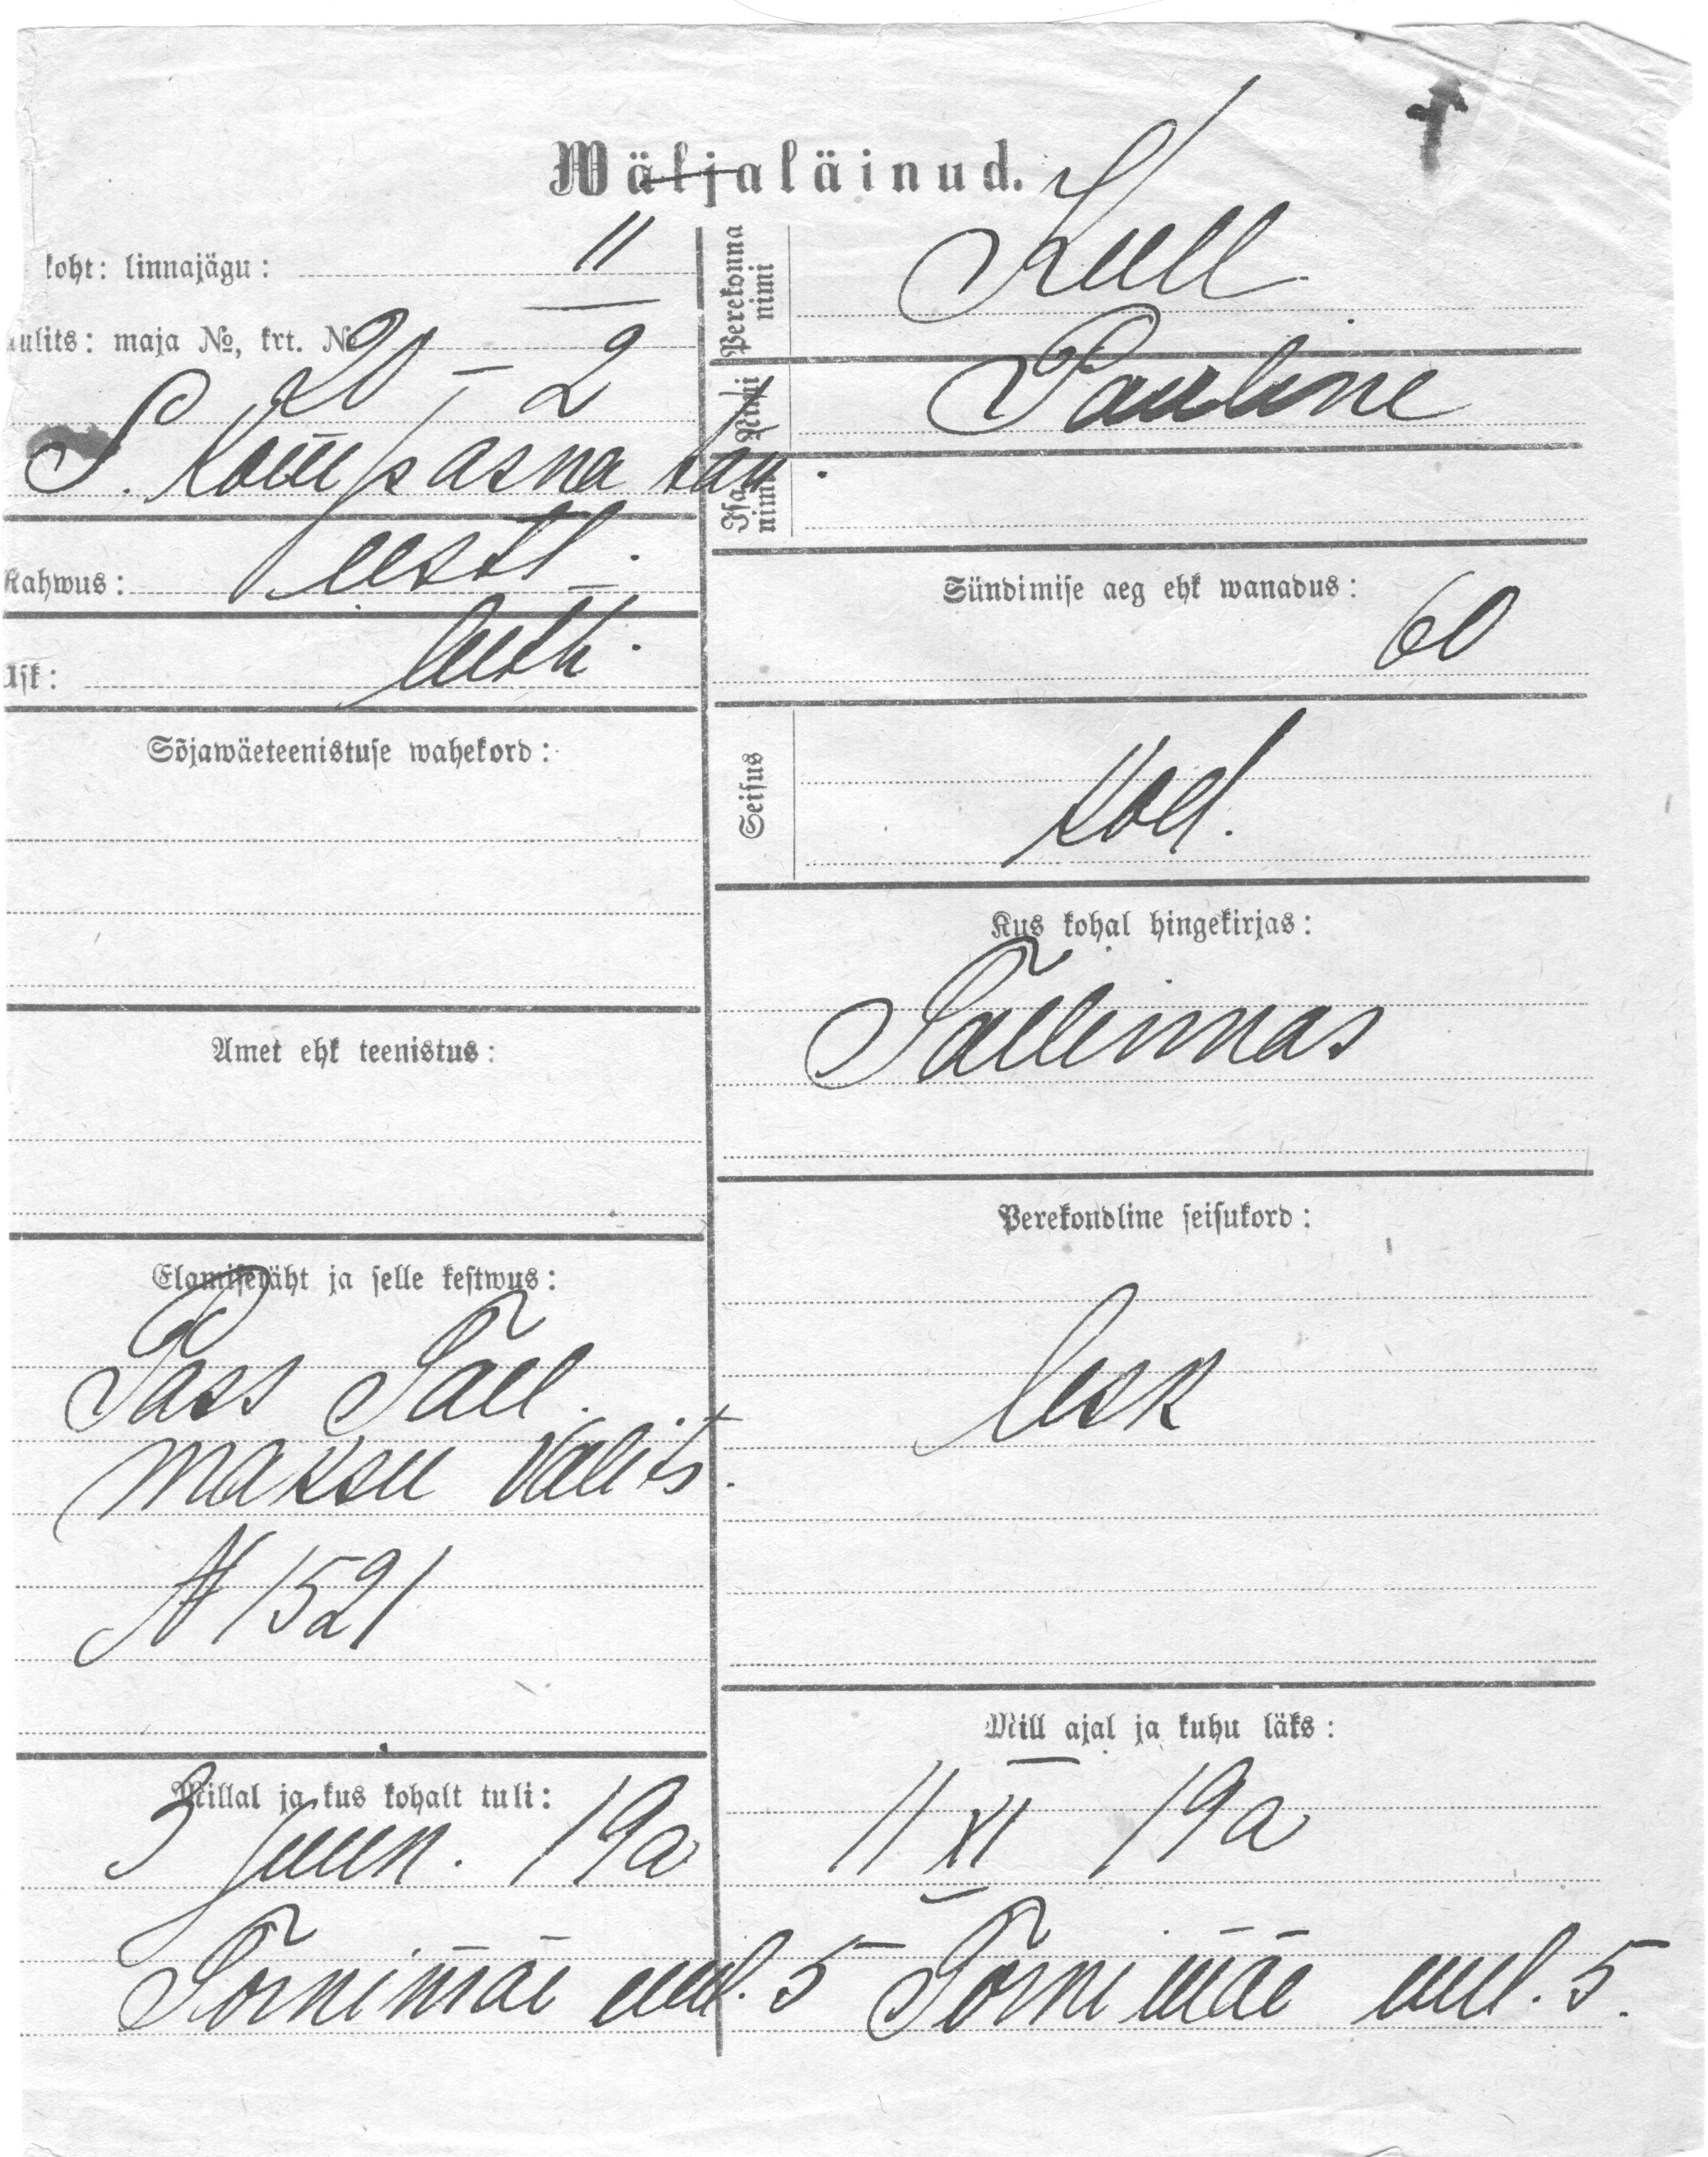 Wäljaläinud.
koht: linnajägu: II
uulits: maja №, krt. №
20 – 2
S. Kompasna tän.
Rahwus: eestl.
Usk: luth.
Sõjawäeteenistuse wahekord:
Amet ehk teenistus:
Elamisetäht ja selle kestwus:
Pass Tall.
maksu valits.
№ 1521
Millal ja kus kohalt tuli:
3 Juun. 19a
Tornimäe uul. 5
Perekonna nimi Kull
Nimi Pauline
Isa nimi
Sündimise aeg ehk wanadus:
60
Seisus kod.
Kus kohal hingekirjas:
Tallinnas
Perekondline seisukord:
lesk
Mill ajal ja kuhu läks:
11 XI 19a
Tornimäe uul. 5.